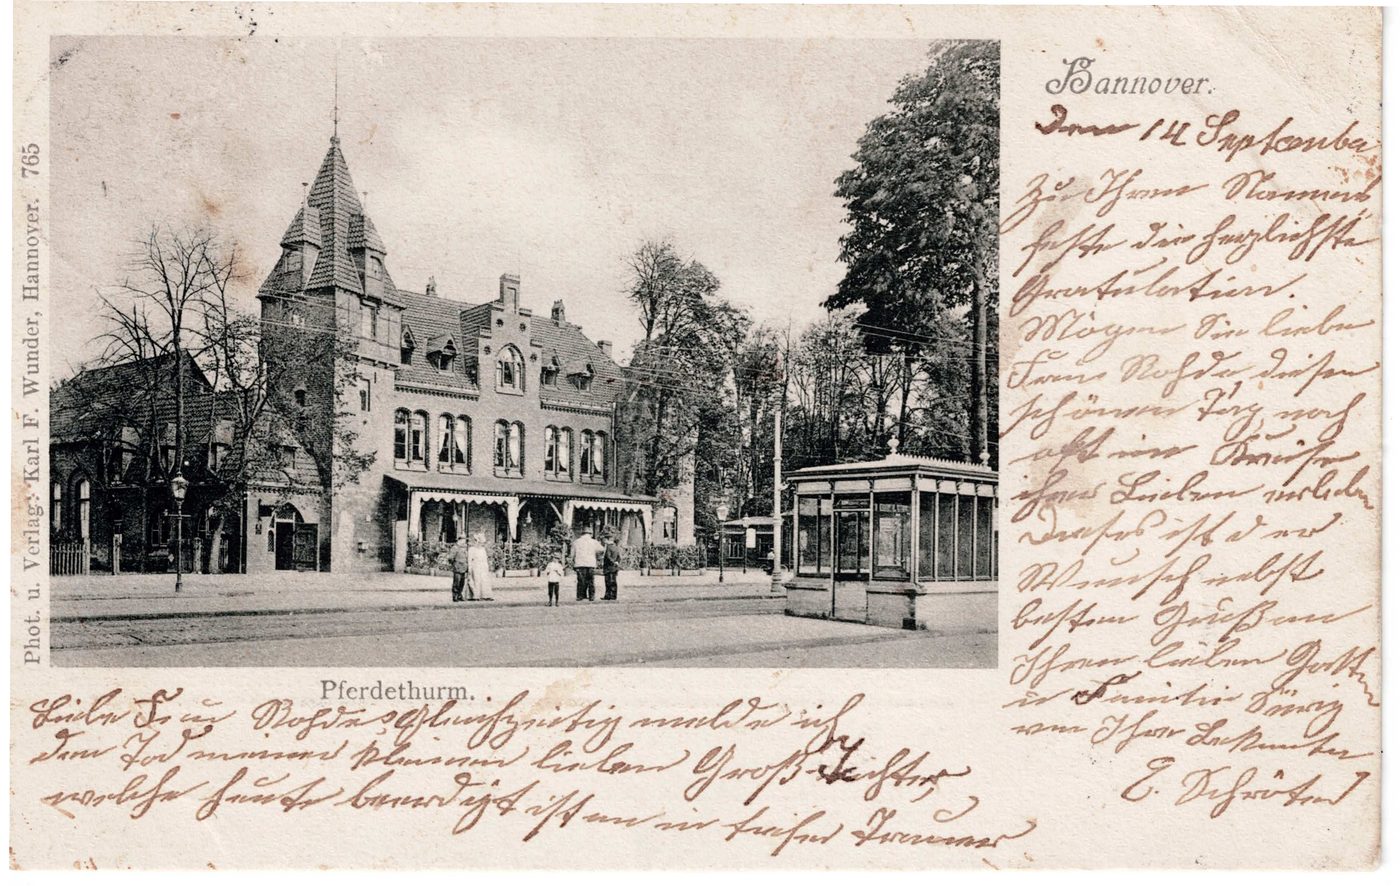 Hannover.
Den 14 September
Zu Ihren Namens
feste die herzlichste
Gratulation.
Mögen Sie liebe
Frau Rohde diesen
schönen Tag noch
oft im Kreise
ihrer Lieben erleben
Dieses ist der
Wunsch nebst
besten Grüßen
Ihren lieben Gatten
u Familie
von Ihre Bekannten
E. Schröter
Phot. u. Verlag: Karl F. Wunder, Hannover. 765
Pferdethurm.
Liebe Frau Rohde, Gleichzeitig melde ich
den Tod meines kleinen lieben Groß Tochter,
welche heute beerdigt ist in tiefer Trauer